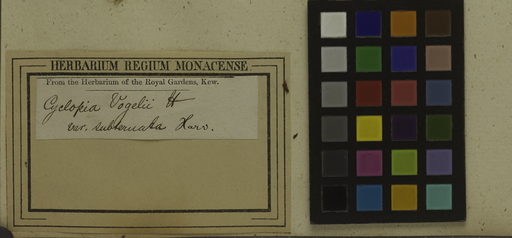 HERBARIUM REGIUM MONACENSE
From the Herbarium of the Royal Gardens, Kew.
Cyclopia Vogelii H
var. subternata Harv.